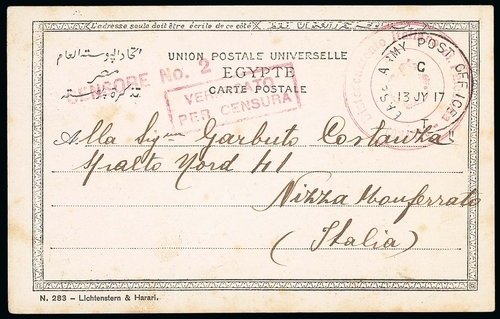 L'adresse seule doit être écrite de ce côté
UNION POSTALE UNIVERSELLE
EGYPTE
CARTE POSTALE
اتحاد البوسته العام
مصر
تذكرة بوسته
CENSORE No. 2
VERIFICATO
PER CENSURA
ARMY POST OFFICE
C
13 JY 17
Alla Sigra Garbuto Costanza
Spalto Nord 41
Nizza Monferrato
(Italia)
N. 283 – Lichtenstern & Harari.